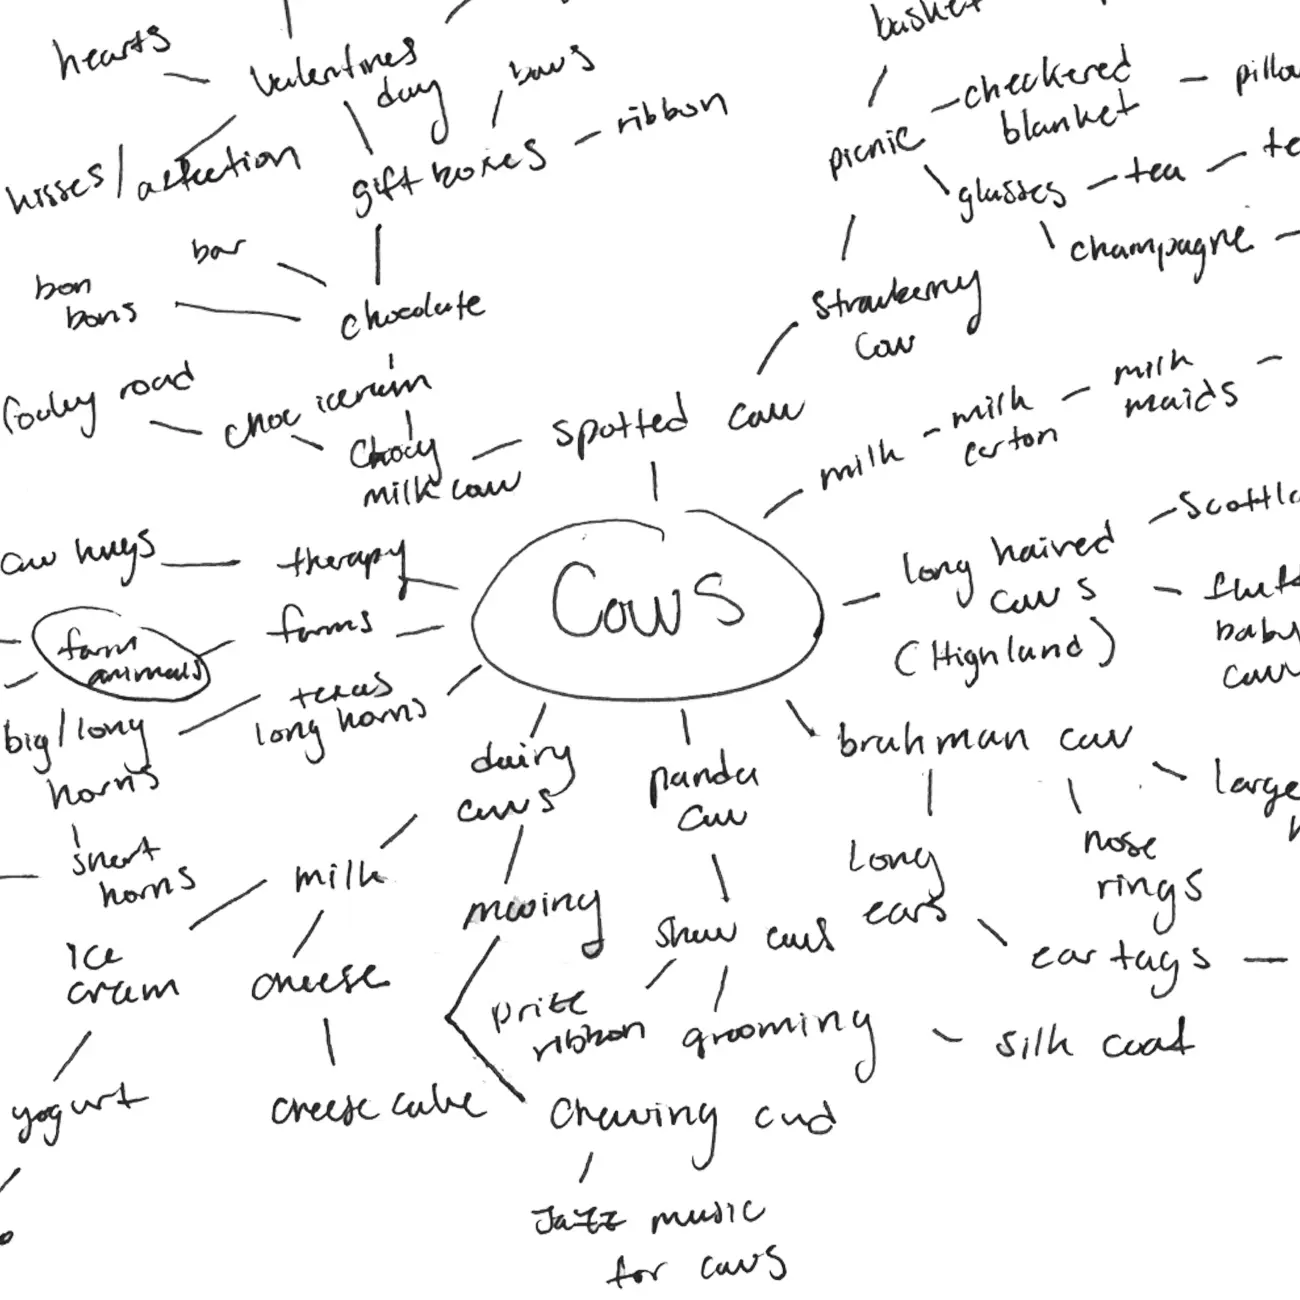 hearts
valentines
day
bows
ribbon
kisses/
gift boxes
bar
bon
bons
chocolate
road
choc icecream
Chocy
milk cow
spotted cow
basket
picnic
checkered
blanket
glasses
tea
champagne
Strawberry
Cow
milk
milk
carton
milk
maids
long haired
cows
(Highland)
baby
cow
Cows
cow hugs
therapy
farms
farm
animals
texas
long horns
big/long
horns
short
horns
dairy
cows
panda
cow
brahman cow
large
long
ears
nose
rings
ear tags
milk
mooing
show cows
ice
cream
cheese
prize
ribbon
grooming
silk coat
yogurt
cheese cake
Chewing cud
Jazz music
for cows